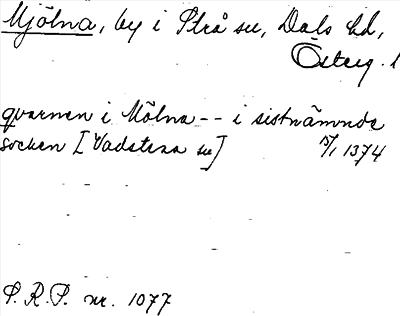 Mjölna, by i Strå sn, Dals hd,
Österg. l
qvarnen i Mölna -- i sistnämnde
socken [Vadstena sn] 15/1 1374
S.R.P. nr. 1077